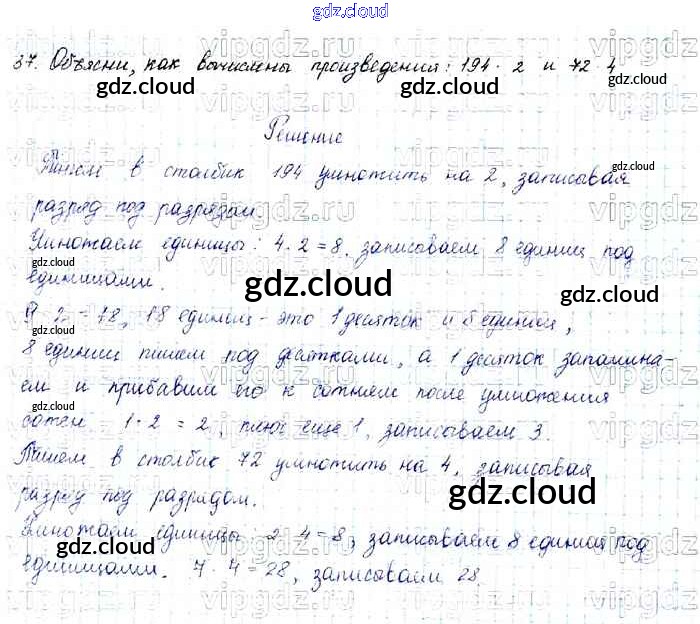 gdz.cloud
37. Объясни, как вычислены произведения: 194 · 2 и 72 · 4
Решение
Пишем в столбик 194 умножить на 2, записывая
разряд под разрядом.
Умножаем единицы: 4 · 2 = 8, записываем 8 единиц под
единицами.
9 · 2 = 18, 18 единиц - это 1 десяток и 8 единиц,
8 единиц пишем под десятками, а 1 десяток запомина-
ем и прибавим его к сотням после умножения
сотен 1 · 2 = 2, плюс еще 1, записываем 3.
Пишем в столбик 72 умножить на 4, записывая
разряд под разрядом.
Умножаем единицы 2 · 4 = 8, записываем 8 единиц под
единицами. 7 · 4 = 28, записываем 28.